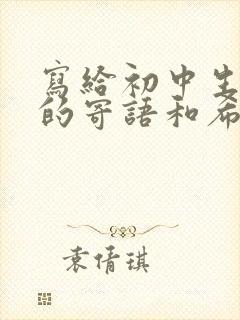 寫給初中生
的寄語和希
袁倩琪